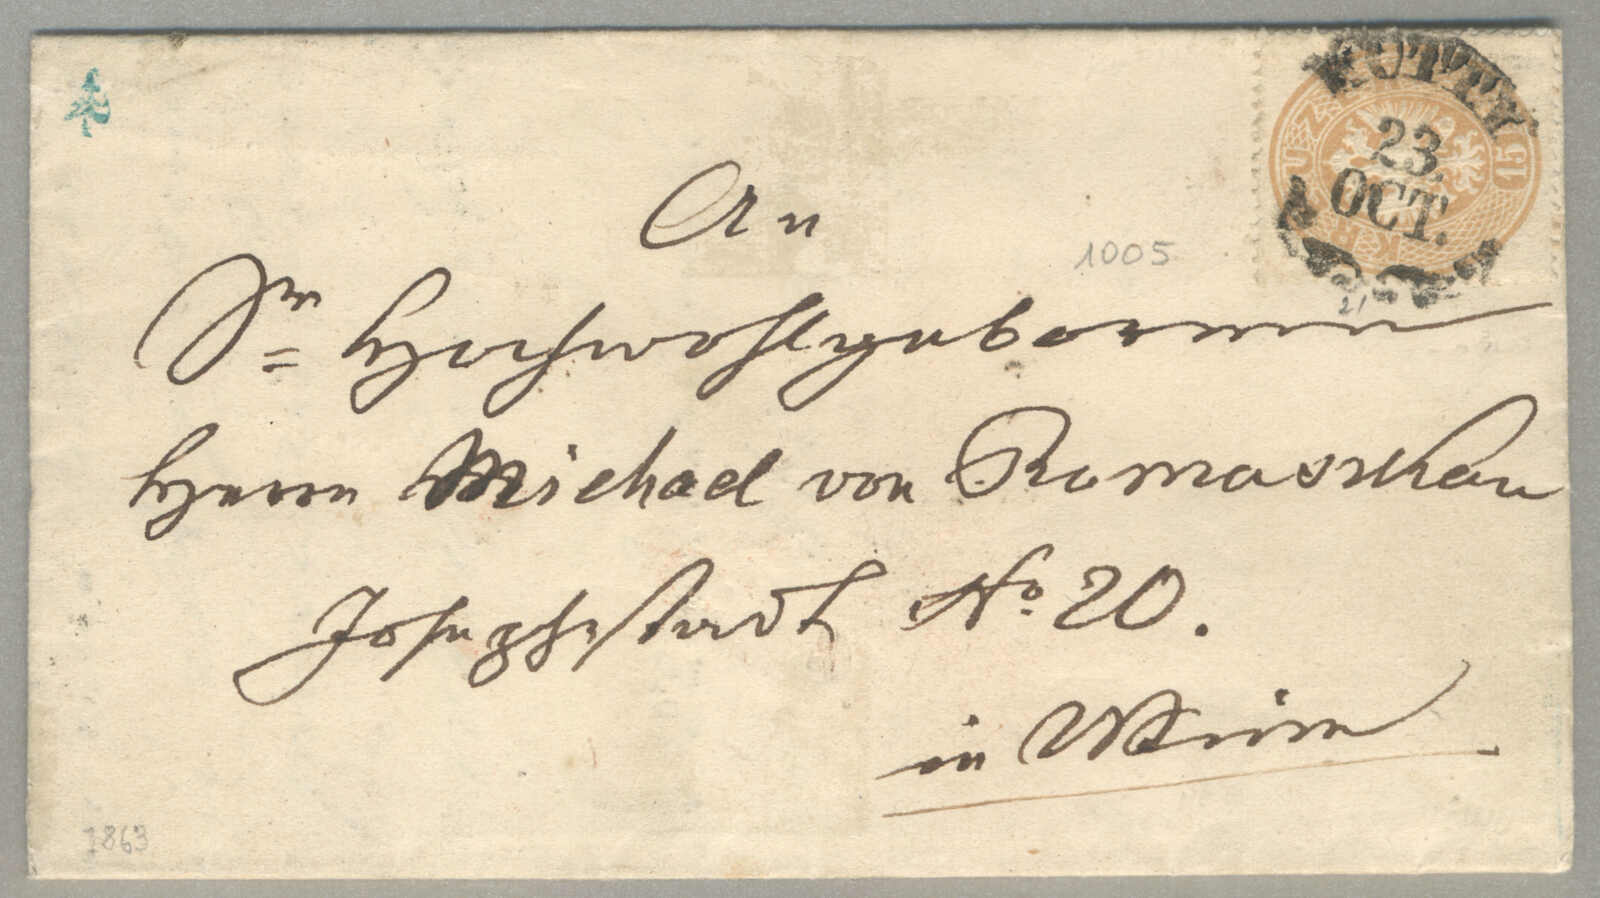 KUTTY
23.
OCT.
15 KREUZ
An
1005
21
Sr= Hochwohlgeboren
Herrn Michael von Romaschkan
Josephstadt No 20.
in Wien
1863